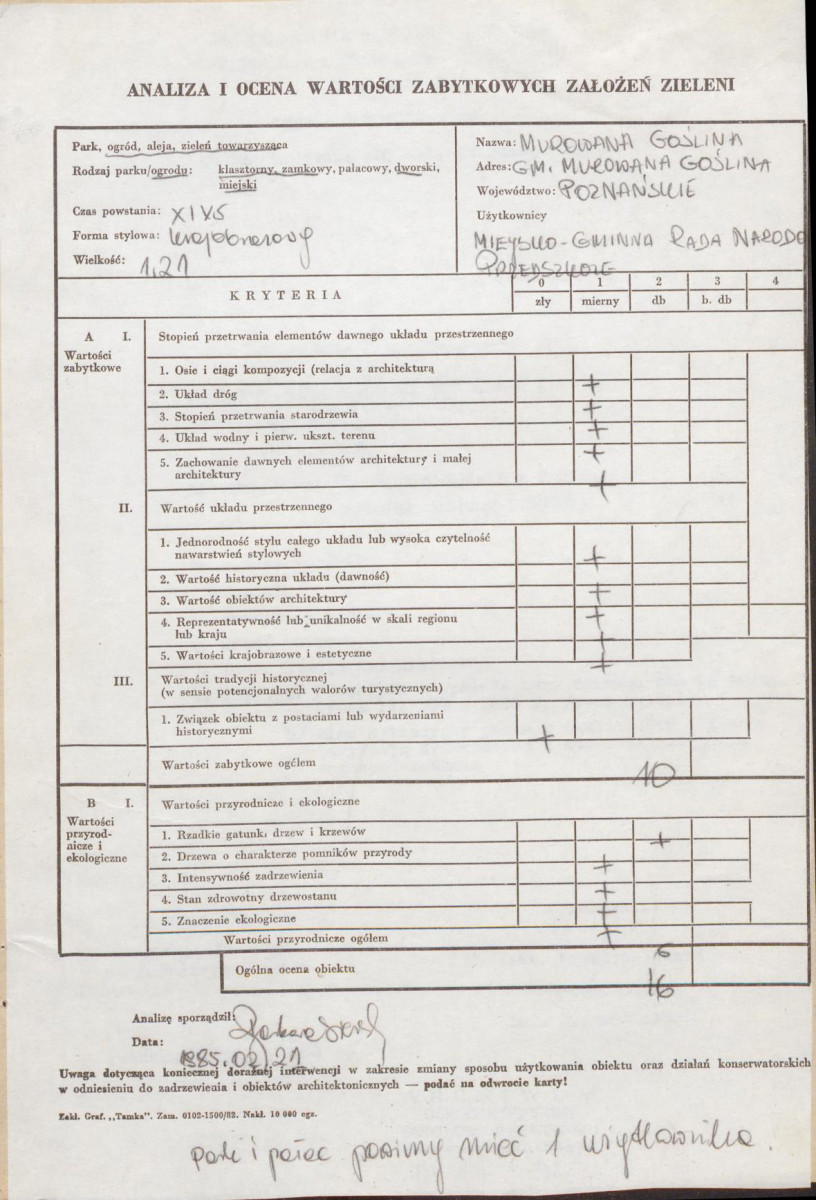 ANALIZA I OCENA WARTOŚCI ZABYTKOWYCH ZAŁOŻEŃ ZIELENI
Park, ogród, aleja, zieleń towarzysząca
Rodzaj parku/ogrodu: klasztorny, zamkowy, pałacowy, dworski,
miejski
Czas powstania:
Forma stylowa: krajobrazowy
Wielkość: 1,21
Nazwa: MUROWANA GOŚLINA
Adres: GM. MUROWANA GOŚLINA
Województwo: POZNAŃSKIE
Użytkownicy
MIEJSKO-GMINNA RADA NARODO
PRZEDSZKOLE
KRYTERIA
0 1 2 3 4
zły mierny db b. db
A I. Stopień przetrwania elementów dawnego układu przestrzennego
Wartości
zabytkowe
1. Osie i ciągi kompozycji (relacja z architekturą +
2. Układ dróg +
3. Stopień przetrwania starodrzewia +
4. Układ wodny i pierw. ukszt. terenu +
5. Zachowanie dawnych elementów architektury i małej
architektury +
II. Wartość układu przestrzennego
1. Jednorodność stylu całego układu lub wysoka czytelność
nawarstwień stylowych +
2. Wartość historyczna układu (dawność) +
3. Wartość obiektów architektury +
4. Reprezentatywność lub unikalność w skali regionu
lub kraju +
5. Wartości krajobrazowe i estetyczne +
III. Wartości tradycji historycznej
(w sensie potencjonalnych walorów turystycznych)
1. Związek obiektu z postaciami lub wydarzeniami
historycznymi +
Wartości zabytkowe ogółem 10
B I. Wartości przyrodnicze i ekologiczne
Wartości
przyrod-
nicze i
ekologiczne
1. Rzadkie gatunki drzew i krzewów +
2. Drzewa o charakterze pomników przyrody +
3. Intensywność zadrzewienia +
4. Stan zdrowotny drzewostanu +
5. Znaczenie ekologiczne +
Wartości przyrodnicze ogółem 6
Ogólna ocena obiektu 16
Analizę sporządził:
Data: 1985.02.21
Uwaga dotycząca koniecznej doraźnej interwencji w zakresie zmiany sposobu użytkowania obiektu oraz działań konserwatorskich
w odniesieniu do zadrzewienia i obiektów architektonicznych — podać na odwrocie karty!
Zakł. Graf. „Tamka". Zam. 0102-1500/82. Nakł. 10 000 egz.
Park i pałac powinny mieć 1 użytkownika.